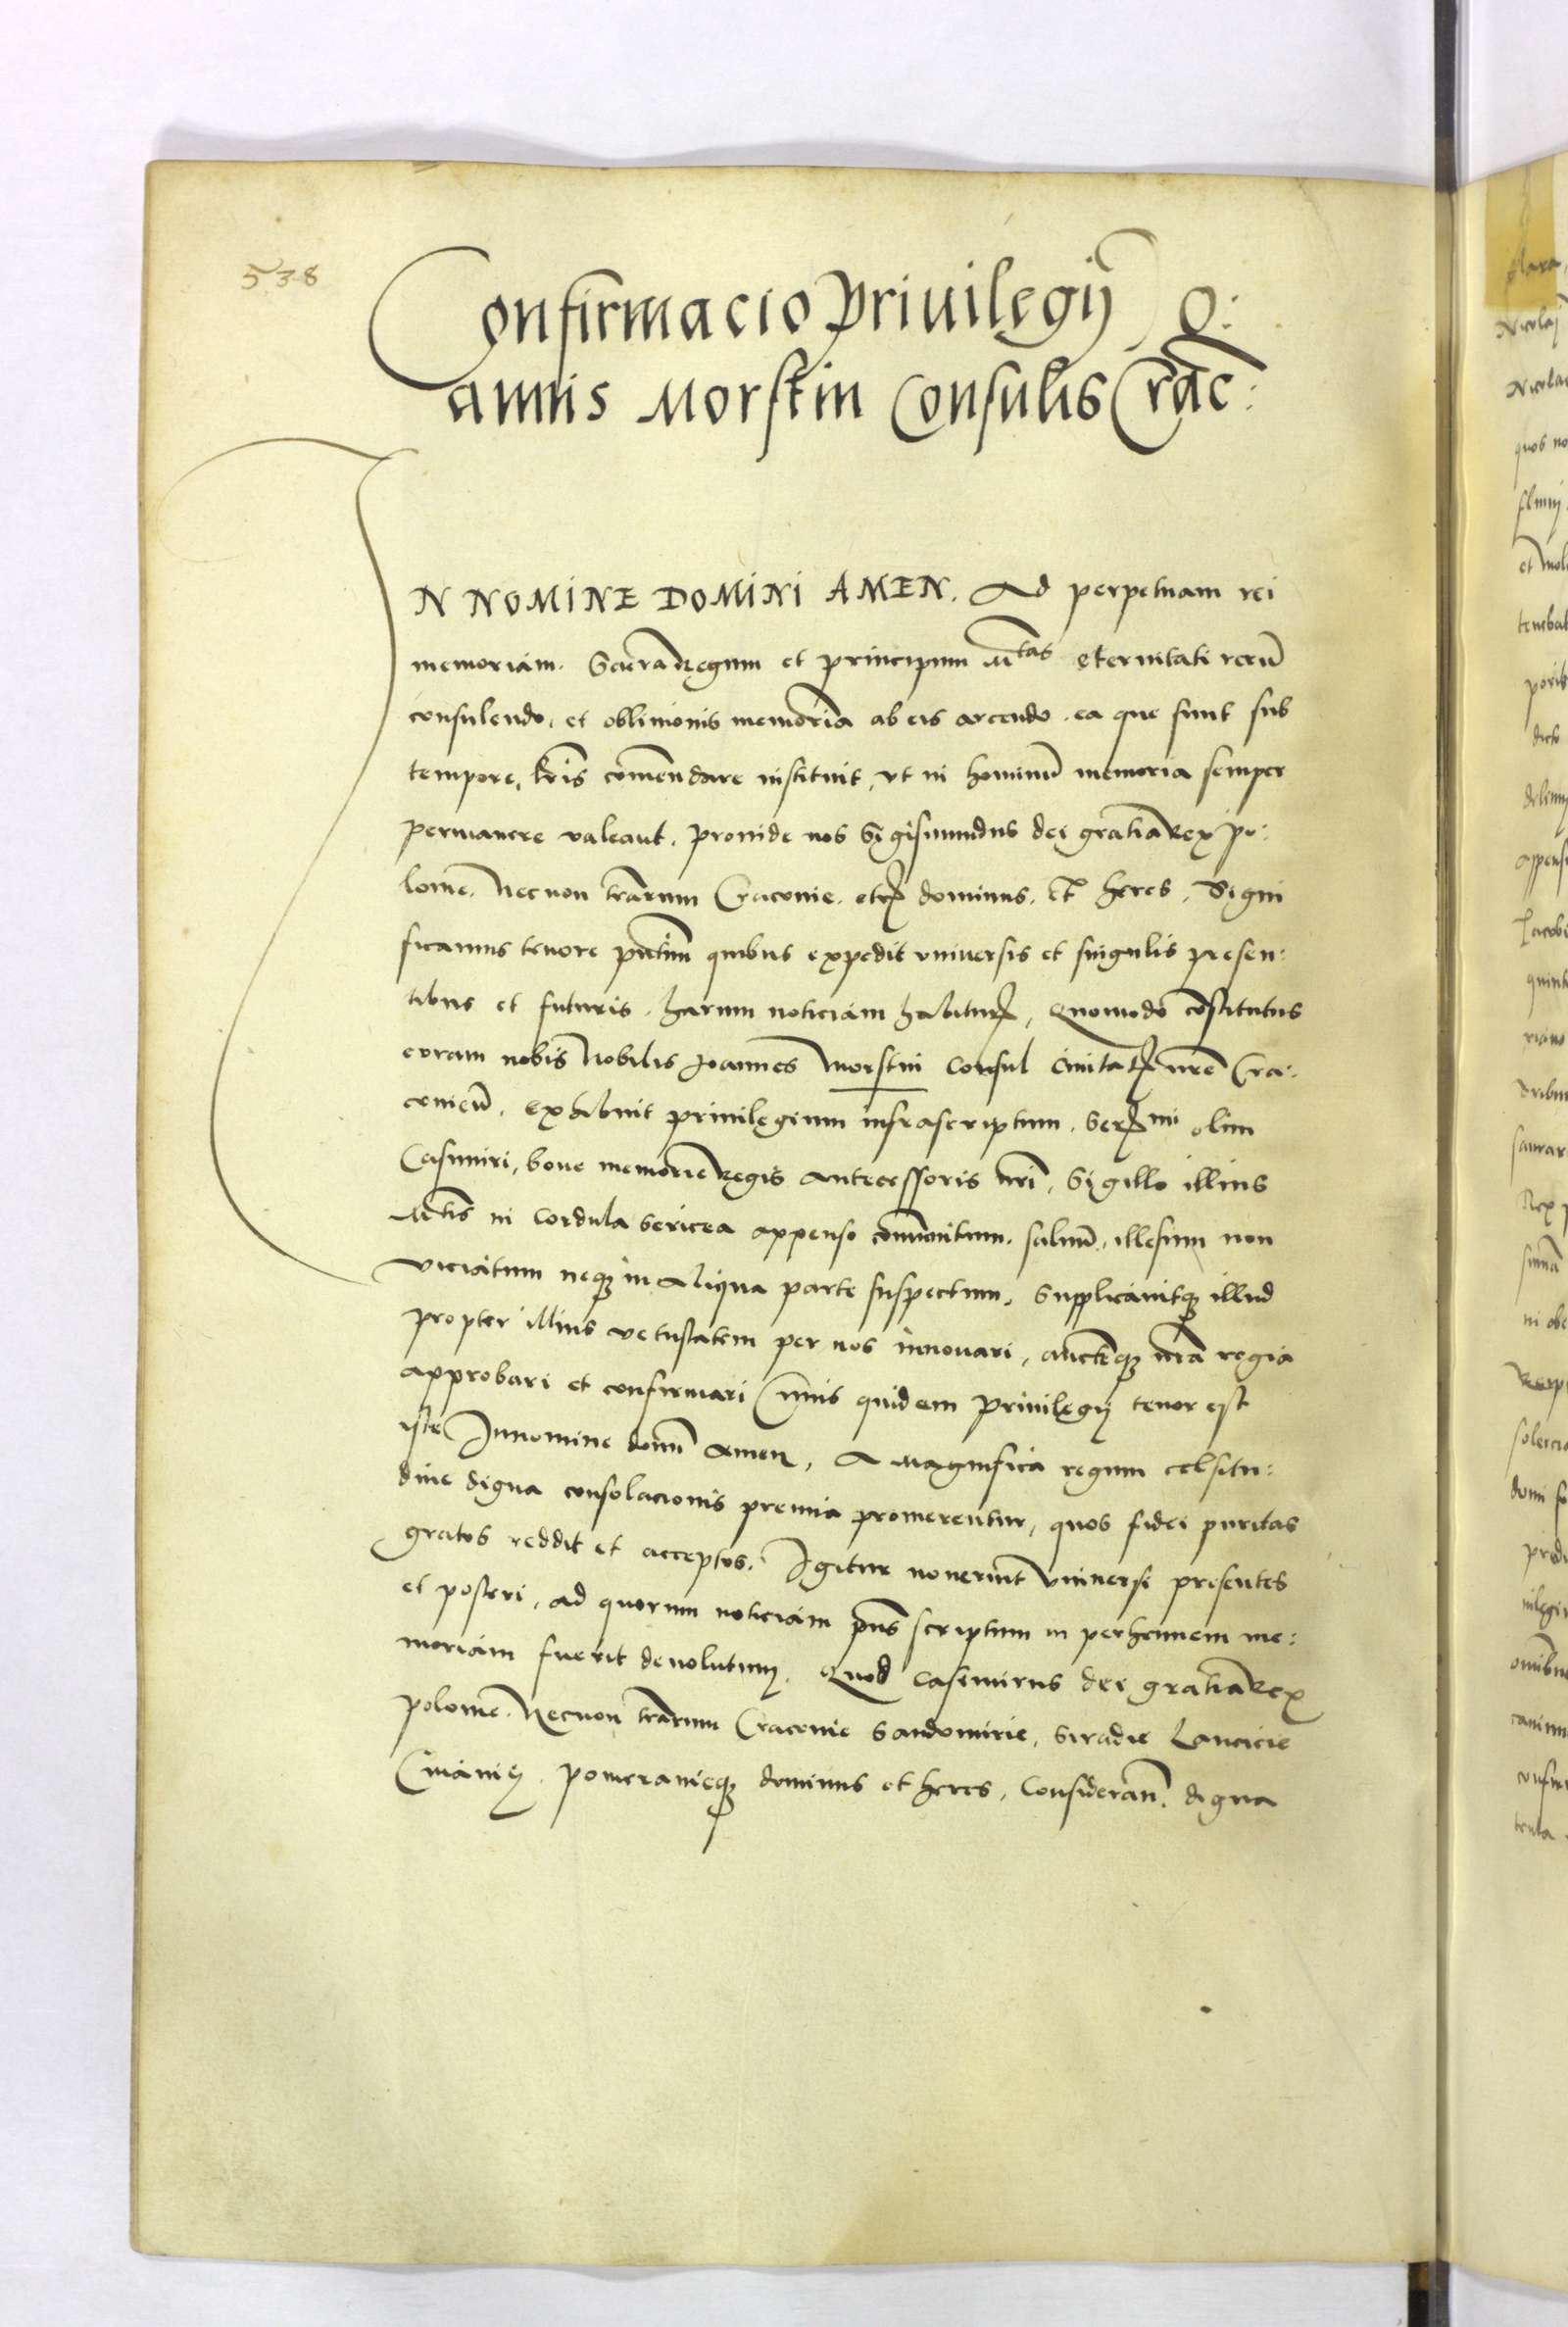 538
Confirmacio Priuilegij Jo:
annis Morstin Consulis Crac:
IN NOMINE DOMINI AMEN. Ad perpetuam rei
memoriam. Sacra Regum et principum Mtas eternitati rerū
consulendo, et obliuionis memoria ab eis arcendo. ea que sunt sub
tempore, lr̄is com̄endare instituit, vt in hominū memoria semper
permanere valeant. proinde nos Sigismundus dei gratia Rex po:
lonie. Necnon tr̄arum Cracouie. etc dominus. Et heres. Signi
ficamus tenore pn̄tium quibus expedit vniuersis et singulis presen:
tibus et futuris. harum noticiam habituris, Quomodo cōstitutus
coram nobis Nobilis Joannes Morstin Consul Ciuitatis nr̄e Cra:
couien̄. exhibuit priuilegium infrascriptum. Sermi olim
Casimiri, bone memorie Regis antecessoris nr̄i, Sigillo illius
Mtis in Cordula sericea appenso com̄unitum. saluū. illesum non
viciatum neq in aliqua parte suspectum. Supplicauitq illud
propter illius vetustatem per nos innouari, auctēq nr̄a regia
approbari et confirmari Cuius quidem priuilegij tenor est
iste In nomine domī Amen, A Magnifica regum celsitu:
dine digna consolacionis premia promerentur, quos fidei puritas
gratos reddit et acceptos. Igitur nouerint vniuersi presentes
et posteri, ad quorum noticiam pn̄s scriptum in perhennem me:
moriam fuerit deuolutum. Quod Casimirus dei gratia Rex
polonie. Necnon tr̄arum Cracouie Sandomirie, Siradie Lancicie
Cuiauie. pomeranieq dominus et heres, Consideran̄. digna